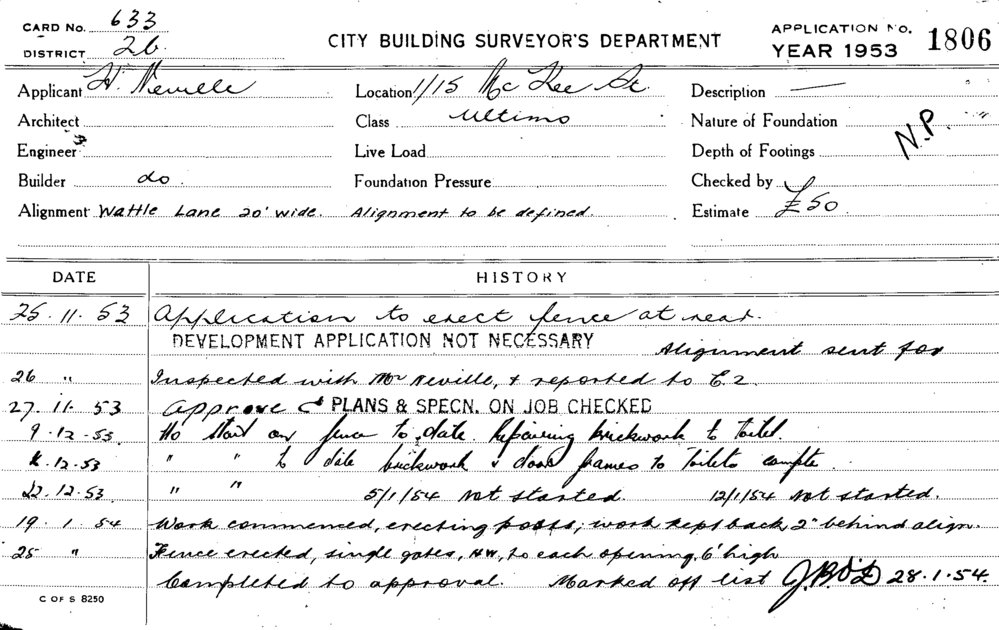 CARD No. 633
DISTRICT 26.
CITY BUILDING SURVEYOR'S DEPARTMENT
APPLICATION No. 1806
YEAR 1953
Applicant H. Neville Location 1/15 McKee St. Description —
Architect Class Ultimo Nature of Foundation N.P.
Engineer Live Load Depth of Footings
Builder do. Foundation Pressure Checked by
Alignment Wattle Lane 20' wide. Alignment to be defined. Estimate £50
DATE HISTORY
25.11.53 Application to erect fence at rear.
DEVELOPMENT APPLICATION NOT NECESSARY Alignment sent for
26 " Inspected with Mr Neville, & reported to E.2.
27.11.53 Approved PLANS & SPECN. ON JOB CHECKED
9.12.53. No start on fence to date. Repairing brickwork to toilet.
.12.53 " " to date brickwork & door frames to toilets comple
22.12.53 " " 5/1/54 not started. 12/1/54 not started.
19.1.54 Work commenced, erecting posts, work kept back 2" behind align.
25 " Fence erected, single gates, HW, to each opening, 6' high
Completed to approval. Marked off list 28.1.54.
C OF S 8250